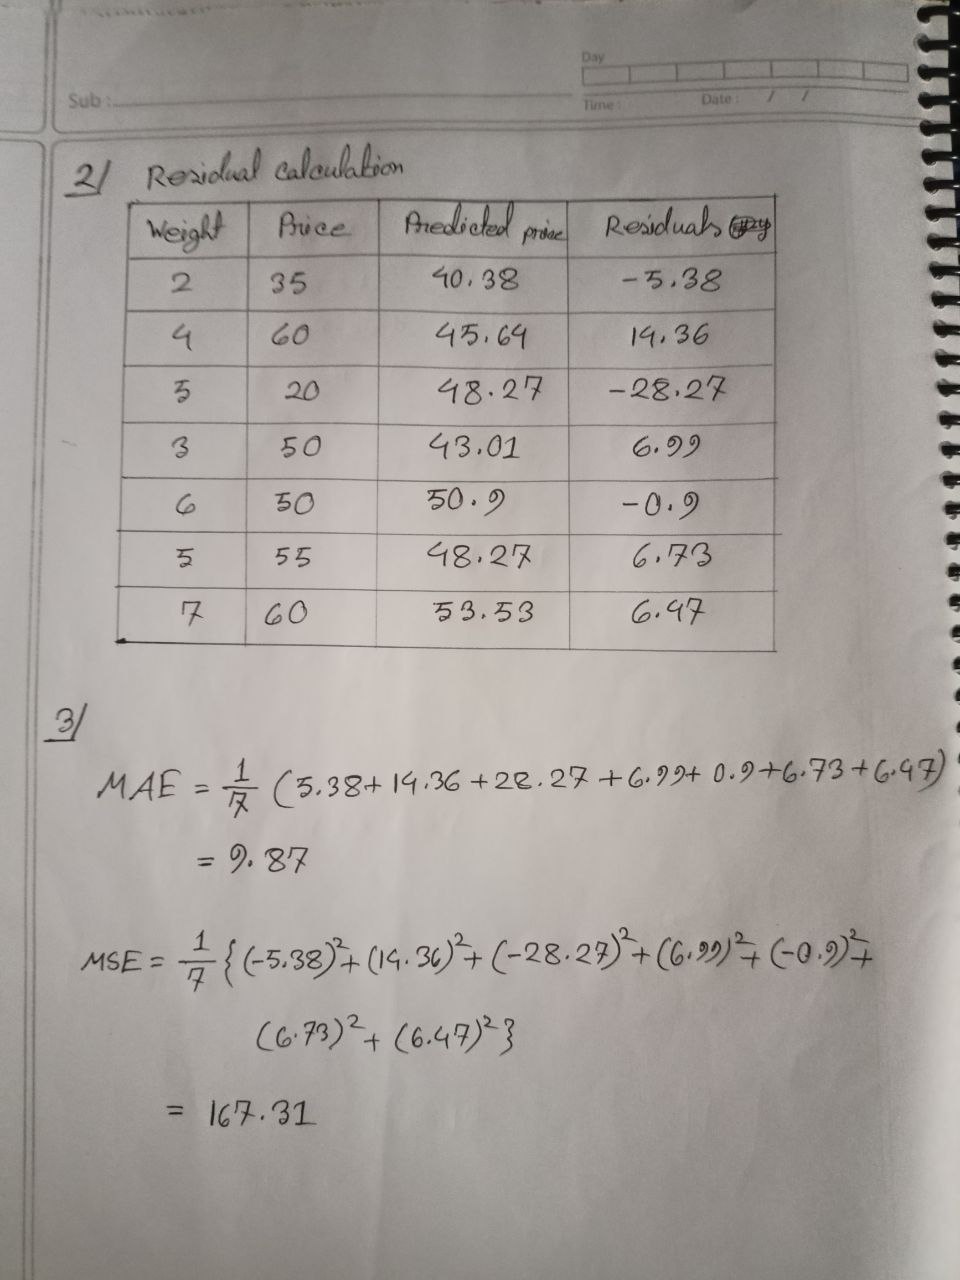 Day
Sub :
Time :
Date : / /
2/ Residual calculation
Weight Price Predicted price Residuals
2 35 40.38 -5.38
4 60 45.64 14.36
5 20 48.27 -28.27
3 50 43.01 6.99
6 50 50.9 -0.9
5 55 48.27 6.73
7 60 53.53 6.47
3/
MAE = 1/7 (5.38+ 14.36 +28.27 +6.99+ 0.9+6.73+6.47)
= 9.87
MSE = 1/7 {(-5.38)²+(14.36)²+(-28.27)²+(6.99)²+(-0.9)²+
(6.73)²+ (6.47)²}
= 167.31